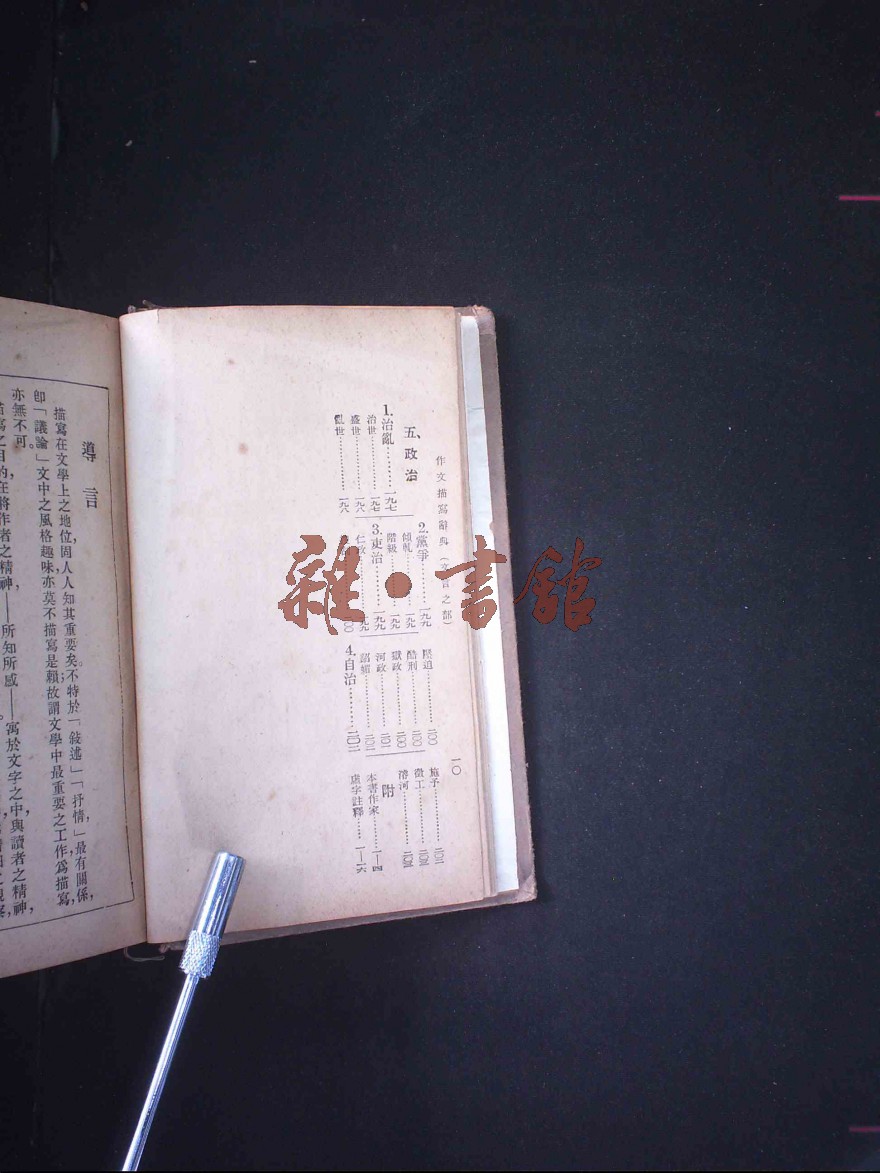 作文描寫辭典（文言之部）
一〇
五、政治
1.治亂…………一九七
治世…………一九七
盛世…………一九八
亂世…………一九八
2.黨爭…………一九九
傾軋…………一九九
階級…………一九九
3.吏治…………一九九
仁政
壓迫…………二〇〇
酷刑…………二〇〇
獄政…………二〇〇
河政…………二〇一
4.自治…………二〇二
施予…………二〇二
濬河
附
本書作家…………一—四
虛字註釋…………一—一六
導言
描寫在文學上之地位，固人人知其重要矣；不特於「敍述」「抒情，」最有關係，
卽「議論」文中之風格趣味，亦莫不描寫是賴，故謂文學中最重要之工作爲描寫，
亦無不可。
描寫之目的，在將作者之精神——所知所感——寓於文字之中，與讀者之精神，
雜·書館